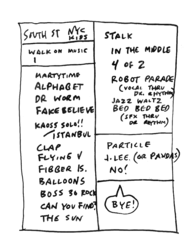 SOUTH ST NYC
KIDS
WALK ON MUSIC
1
MARTYTIME
ALPHABET
DR WORM
FAKE BELIEVE
KAOSS SOLO!!
/ISTANBUL
CLAP
FLYING V
FIBBER IS.
BALLOONS
BOSS TO ROCK
CAN YOU FIND?
THE SUN
STALK
IN THE MIDDLE
4 OF 2
ROBOT PARADE
(VOCAL THRU
DR RHYTHM)
JAZZ WALTZ
BED BED BED
(SFX THRU
DR RHYTHM)
PARTICLE
J. LEE. (OR PANDAS)
NO!
BYE!